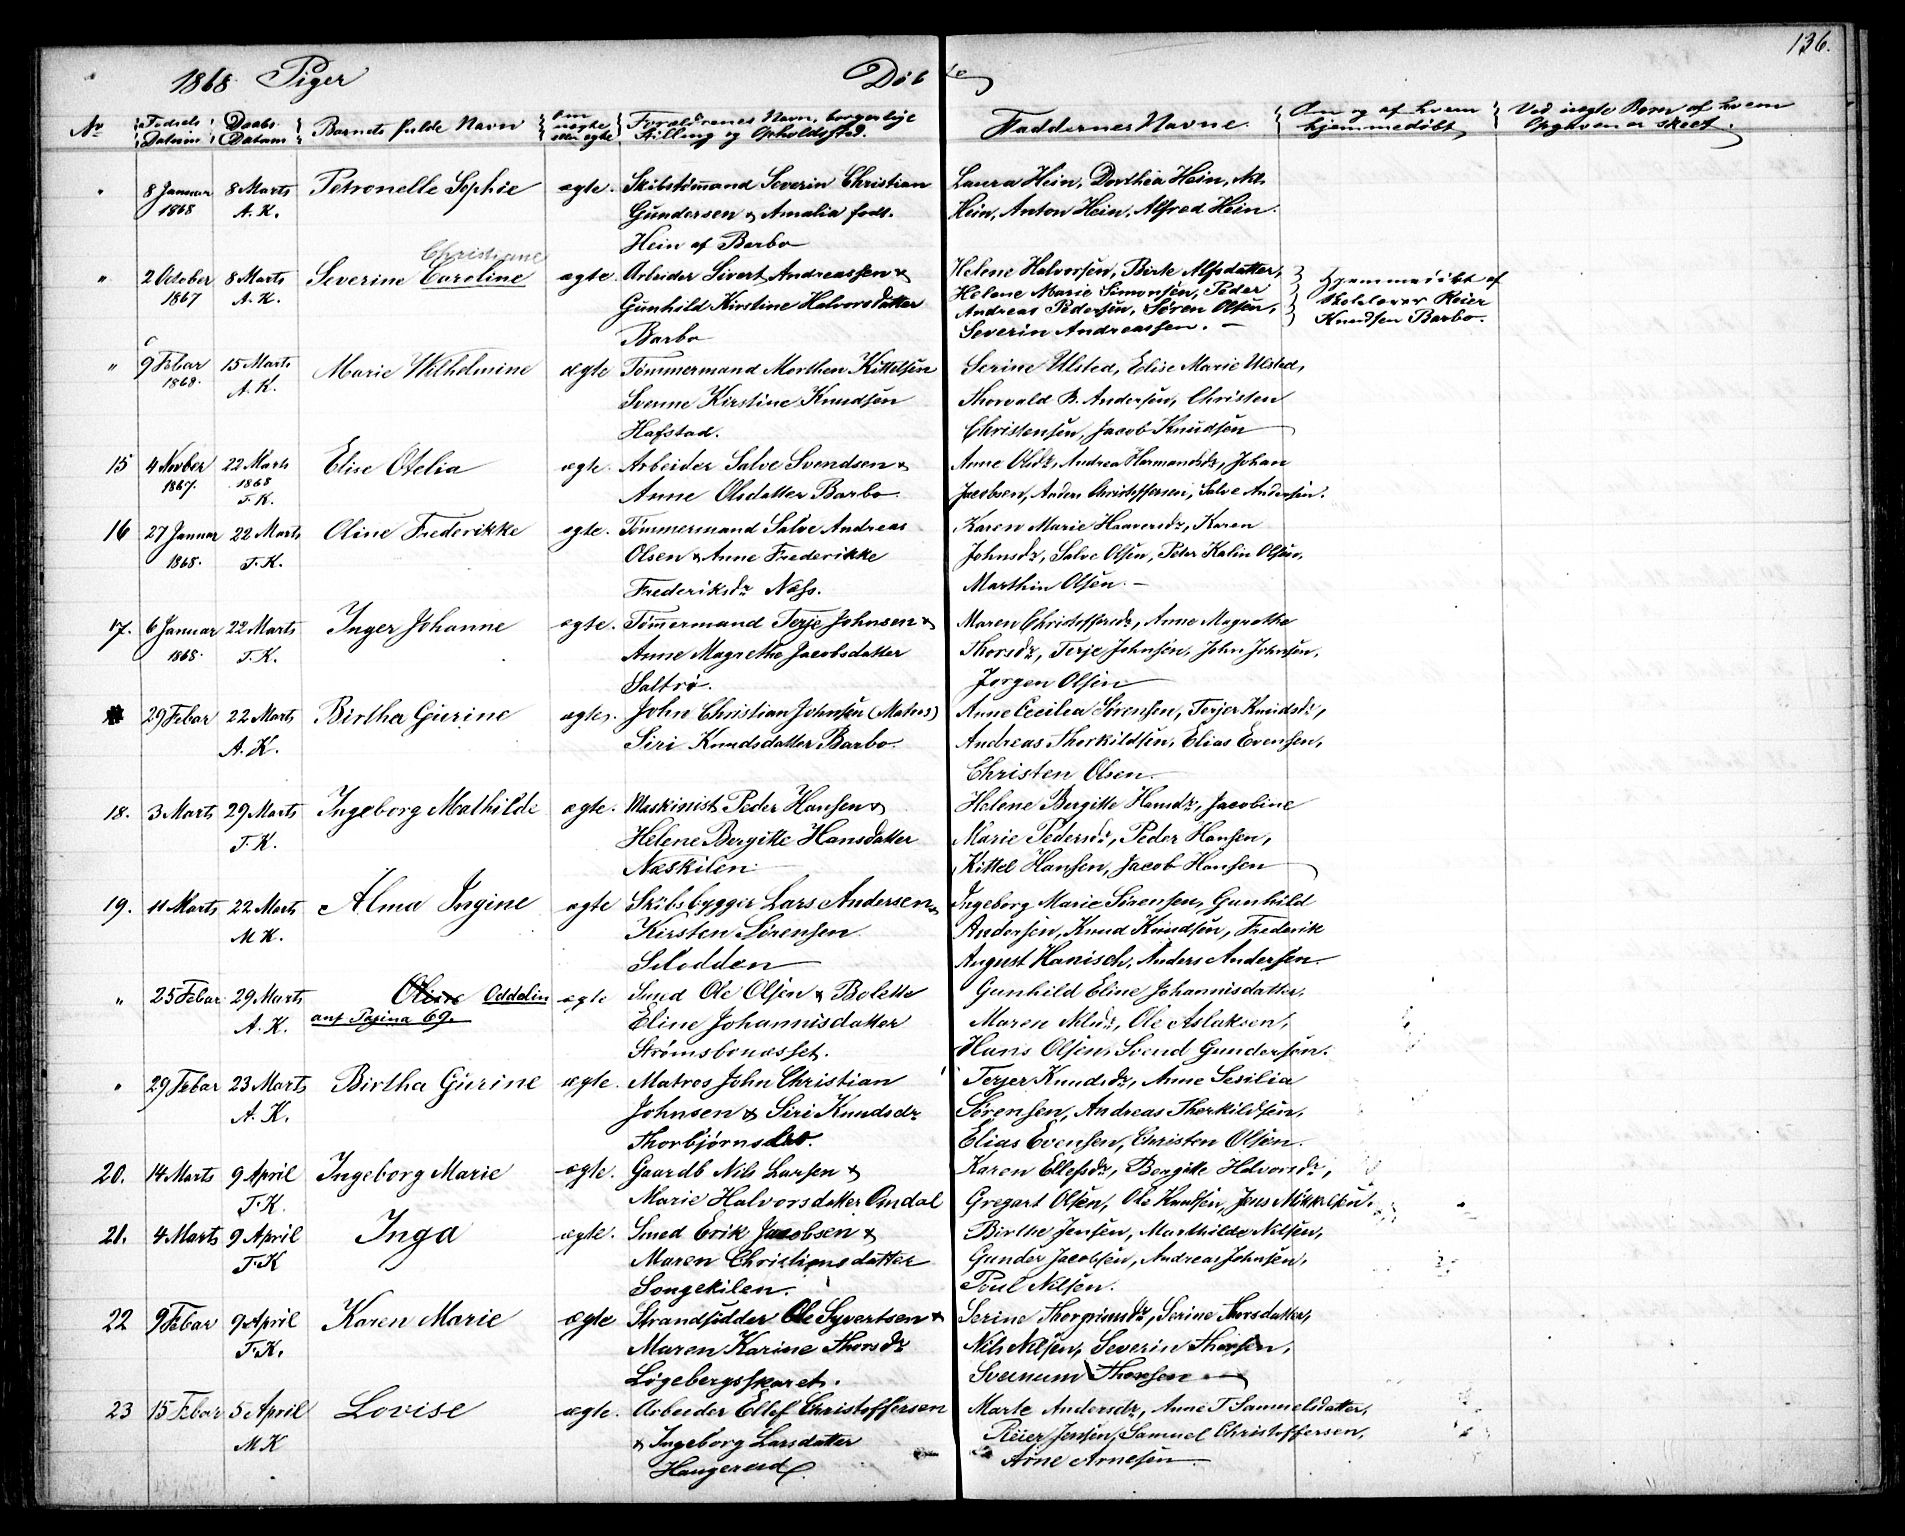 136.
1868 Piger Døbte
No Fødsels Datum Daabs Datum Barnets fulde Navn Om uægte eller ægte Forældrenes Navn, borgerlige Stilling og Opholdssted. Faddernes Navne. Om og af hvem hjemmedøbt Ved uægte Børn af hvem Opgaven er skeet.
" 8 Januar 8 Marts Petronelle Sophie ægte. Skibstømand Severin Christian Laura Hein, Dorthea Hein, Nk.
1868 A. K. Gundersen & Amalia født. Hein, Anton Hein, Alfred Hein.
Hein af Barbo
Christiane
" 2 October 8 Marts Severine Caroline ægte. Arbeider Sivert Andreassen & Helene Halvorsen, Birte Alfsdatter, Hjemmedøbt af
1867 A. K. Gunhild Kirstine Halvorsdatter Helene Marie Simonsen, Peder Skolelærer Reier
Barbo Andreas Pedersen, Søren Olsen, Knudsen Barbo.
Severin Andreassen. –
" 9 Febar 15 Marts Marie Wilhelmine ægte Tømmermand Morthen Kittelsen Serine Ulsted, Elise Marie Ulsted,
1868. A. K. Svenne Kirstine Knudsen Thorvald B. Andersen, Christen
Hafstad. Christensen, Jacob Knudsen
15 4 Novber 22 Marts Elise Otelia ægte. Arbeider Salve Svendsen & Anne Olsdr, Andrea Hermandsdr, Johan
1867. 1868 T. K. Anne Olsdatter Barbo Jacobsen, Anders Christoffersen, Salve Andersen.
16 27 Januar 22 Marts Oline Frederikke ægte. Tømmermand Salve Andreas Karen Marie Haaversdr, Karen
1868. T. K. Olsen & Anne Frederikke Johnsdr, Salve Olsen, Peter Kalin Olsen,
Frederiksdr Næss. Marthin Olsen. –
17. 6 Januar 22 Marts Inger Johanne ægte. Tømermand Terje Johnsen & Maren Christoffersdr, Anne Magrethe
1868. T. K. Anne Magrethe Jacobsdatter Thorsdr, Terje Johnsen, John Johnsen,
Saltrø. Jørgen Olsen
29 Febar 22 Marts Birtha Gurine ægte. John Christian Johnsen (Matros) Anne Cecilia Sørensen, Terjer Knudsdr,
A. K. Siri Knudsdatter Barbo. Andreas Thorkildsen, Elias Evensen,
Christen Olsen
18. 3 Marts 29 Marts Ingeborg Mathilde ægte. Maskinist Peder Hansen & Helene Bergitte Hansdr, Jacobine
T. K. Helene Bergitte Hansdatter Marie Pedersdr, Peder Hansen,
Næskilen Kittel Hansen, Jacob Hansen
19. 11 Marts 22 Marts Alma Ingine ægte Skibsbygger Lars Andersen & Ingeborg Marie Sørensen, Gunhild
M K. Kirsten Sørensen Andersen, Knud Knudsen, Frederik
Sclodden August Hanisch, Anders Andersen
" 25 Febar 29 Marts Oline Oddelin ægte Smed Ole Olsen & Bolette Gunhild Eline Johannisdatter,
A. K. anf Pagina 69. Eline Johannisdatter Maren Nilsdr, Ole Aslaksen,
Strømsbunæsset. Hans Olsen, Svend Gundersen.
" 29 Febar 23 Marts Birtha Gurine ægte. Matros John Christian Terjer Knudsdr, Anne Sesilia
A. K. Johnsen & Siri Knudsdr Sørensen, Andreas Thorkildsen,
Thorbjørnsbro. Elias Evensen, Christen Olsen.
20. 14 Marts 9 April Ingeborg Marie ægte. Gaardb Nils Larsen & Karen Ellefsdr, Bergitte Halvorsdr,
T. K. Marie Halvorsdatter Omdal Gregart Olsen, Ole Knudsen, Jens Mikkelsen.
21. 4 Marts 9 April Inga ægte. Smed Erik Jacobsen & Birthe Jensen, Marthilde Nilsen,
T. K Maren Christiansdatter Gunder Jacobsen, Andreas Johnsen,
Songekilen. Poul Nilsen.
22 9 Febar 9 April Karen Marie ægte Strandsidder Ole Syvertsen & Serine Thorgrimsdr, Serine Thorsdatter,
T. K. Maren Karine Thorsdr Nils Nilsen, Severin Thorsen,
Løgebergsskaret. Svenum Thorsen
23 15 Febar 5 April Lovise ægte. Arbeider Ellef Christoffersen Marte Andersdr, Anne T Sammelsdatter,
M K & Ingeborg Larsdatter Reier Jensen, Samuel Christoffersen,
Haugerød Arne Arnesen